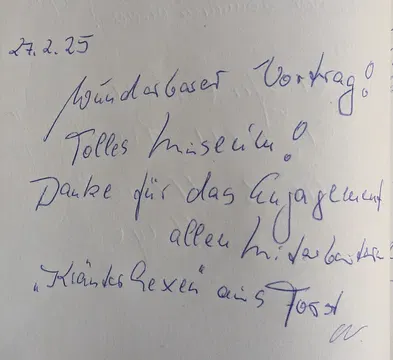 27.2.25
Wunderbarer Vortrag!
Tolles Museum!
Danke für das Engagement
allen Mitarbeitern
"Kräuterhexen" aus Forst